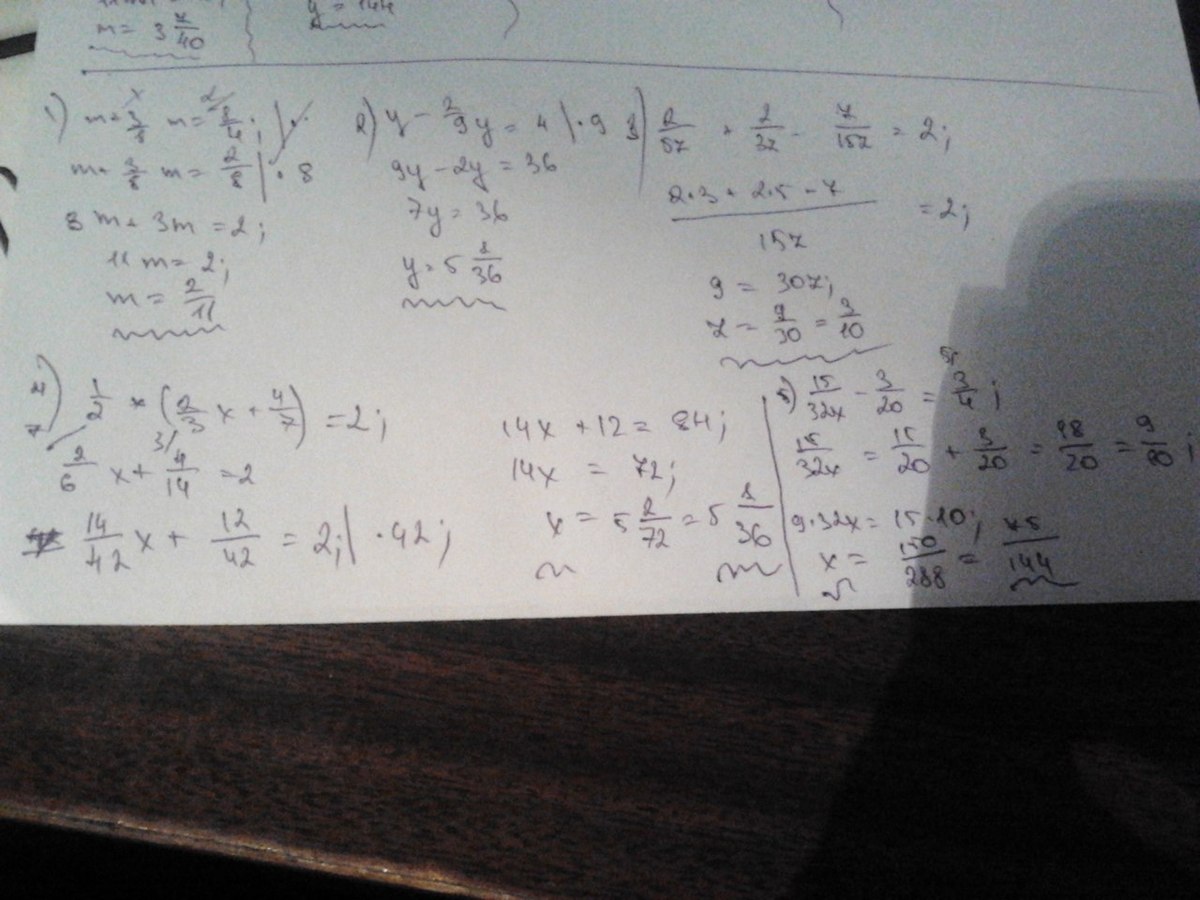 m = 3 7/40
y = 144
1) m + 3/8 m = 1/4; | ·
m + 3/8 m = 2/8 | · 8
8m + 3m = 2;
11m = 2;
m = 2/11
2) y - 2/9 y = 4 | · 9
9y - 2y = 36
7y = 36
y = 5 1/36
3) 2/5z + 2/3z - 7/15z = 2;
2·3 + 2·5 - 7 / 15z = 2;
9 = 30z;
z = 9/30 = 3/10
4) 1/2 × (2/3 x + 4/7) = 2;
2/6 x + 4/14 = 2
14/42 x + 12/42 = 2; | · 42;
14x + 12 = 84;
14x = 72;
x = 5 2/72 = 5 1/36
5) 15/32x - 3/20 = 3/4;
15/32x = 15/20 + 3/20 = 18/20 = 9/10;
9·32x = 15·10;
x = 150/288 = 75/144